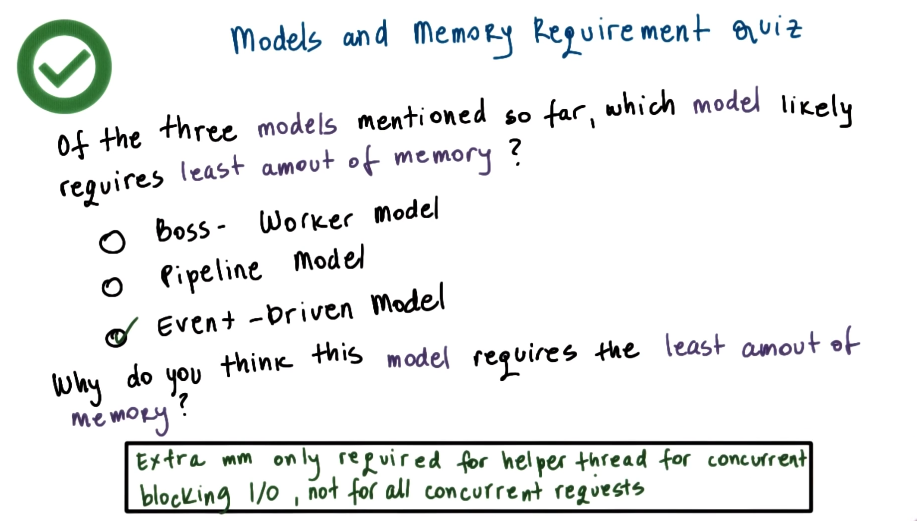 Models and Memory Requirement Quiz
Of the three models mentioned so far, which model likely
requires least amout of memory?
Boss- Worker model
Pipeline Model
Event-Driven Model
Why do you think this model requires the least amout of
memory?
Extra mm only required for helper thread for concurrent
blocking I/O, not for all concurrent requests